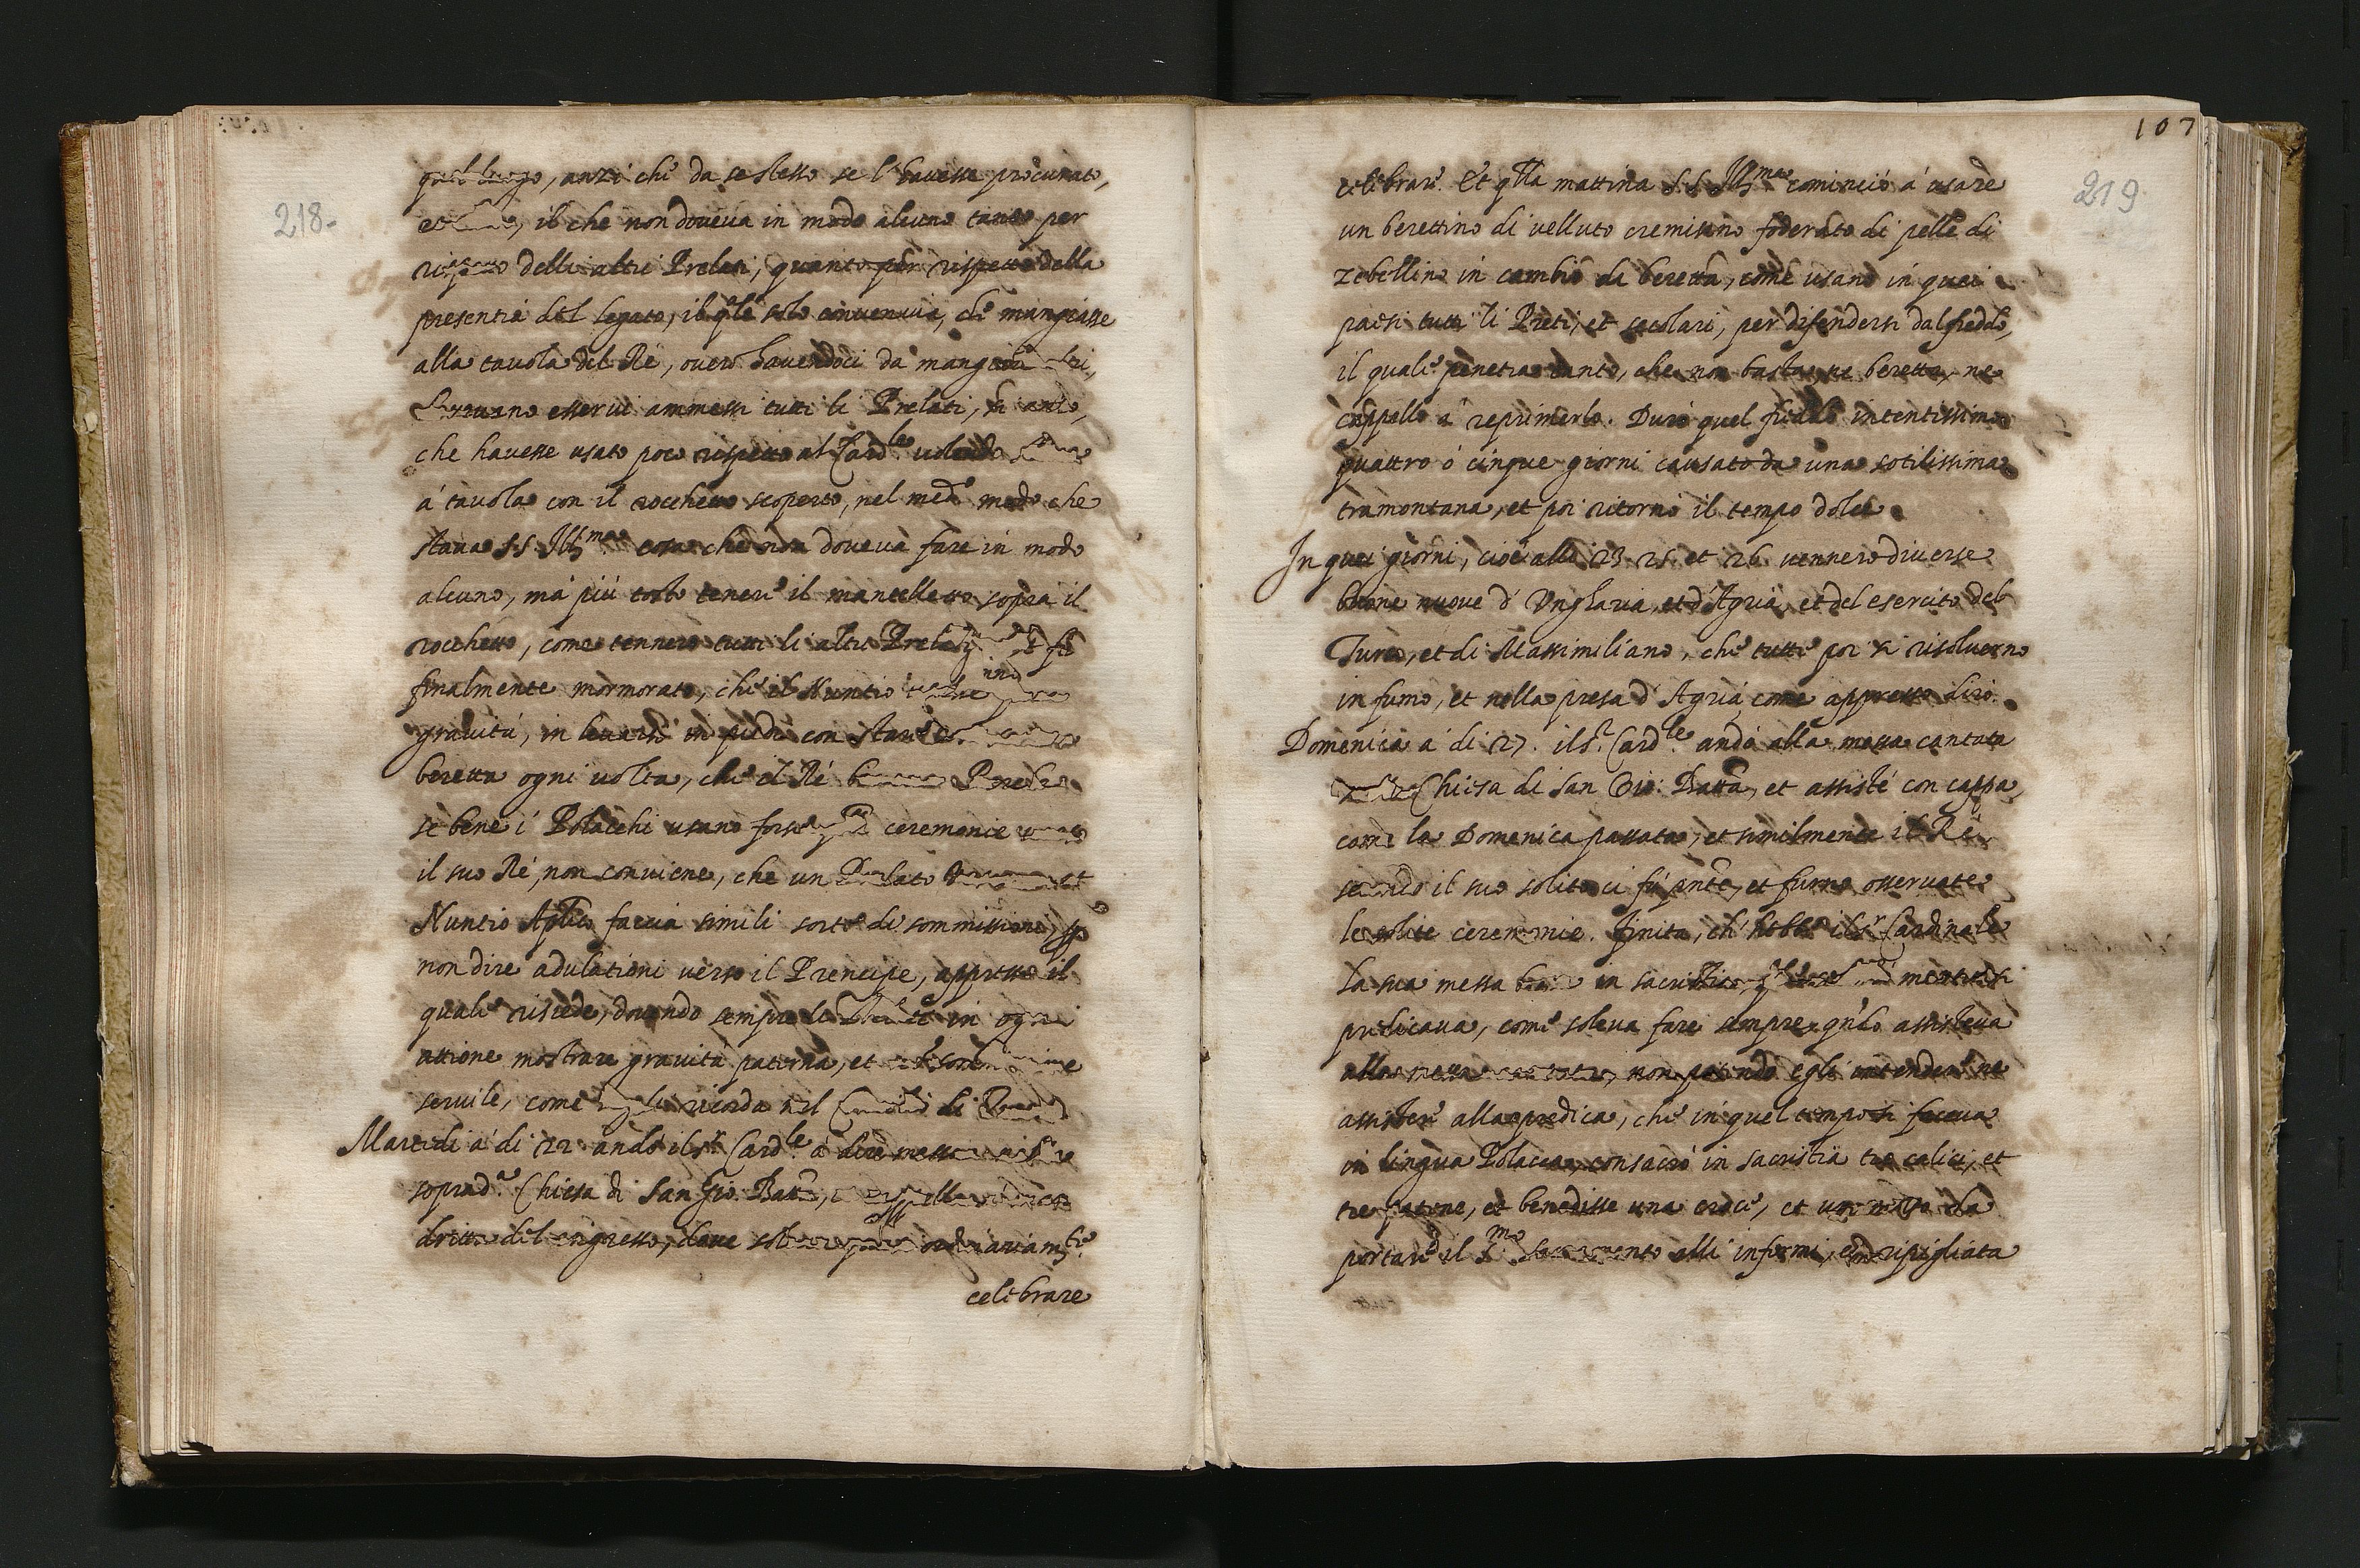 218.
quel luogo, anzi che da se stesso se l'havesse procurato,
il che non doveva in modo alcuno tanto per
rispetto delli altri Prelati, quanto per rispetto della
presentia del Legato, il qle solo conveniva, che mangiasse
alla tavola del Rè, overo havendoci da mangiar altri,
dovevano esservi ammessi tutti li Prelati,
che havesse usato poco rispetto al Card.le volendo
à tavola con il rocchetto scoperto, nel med.o modo che
stava S.S. Ill.ma cosa che non doveva fare in modo
alcuno, mà più tosto tenere il mantelletto sopra il
rocchetto, come tennero tutti li altri Prelati, et fù
finalmente mormorato, che il Nuntio
gravità, in levarsi in piedi con stare
beretta ogni volta, che el Rè
se bene i Polacchi usano forse ceremonie
il suo Rè, non conviene, che un Prelato
Nuntio Aplico faccia simili sorte di sommissione, p
non dire adulationi verso il Prencipe, appresso il
quale risiede, dovendo sempre in ogni
attione mostrare gravità paterna, et
servile, come ricorda nel di
Martedi a' di 22 andò il s.r Card.le à dire messa
soprad.a Chiesa di San Gio. Batta,
dritta del ingresso, dove ordinariam.te
celebrare
107
219
celebrare. Et qlla mattina S.S. Ill.ma cominciò à usare
un berettino di velluto cremisino foderato di pelle di
zebellino in cambio da beretta, come usano in quei
paesi tutti li Preti, et secolari, per difendersi dal freddo,
il quale penetra tanto, che non basta, ne beretta, ne
cappello à reprimerlo. Durò quel freddo intentissimo
quattro ò cinque giorni causato da una sotilissima
tramontana, et poi ritornò il tempo dolce.
In quei giorni, cioè alli 23 25 et 26 vennero diverse
buone nuove d' Ungharia, et d'Agria, et del esercito del
Turco, et di Massimiliano, che tutte poi si risolverno
in fumo, et nella presa d'Agria, come appresso dirò.
Domenica a' di 27. il s.r Card.le andò alla messa cantata
Chiesa di San Gio: Batta, et assistè con cappa,
come la Domenica passata, et similmente il Rè
secondo il suo solito ci fù pnte, et furno osservate
le solite ceremonie. Finita, ch' hebbe il s.r Cardinale
la sua messa bassa in sacristia, mentre si
predicava, come soleva fare sempre, qndo assisteva
alla messa cantata, non potendo egli intendere ne
assistere alla predica, che in quel tempo si faceva
in lingua Polacca, consacrò in sacristia tre calici, et
tre patene, et benedisse una croce, et un vaso da
portare il S.mo Sacramento alli infermi, et ripigliata